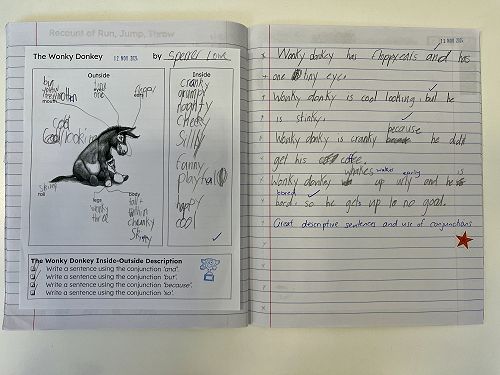 Recount of Run, Jump, Throw
The Wonky Donkey
12 NOV 2024
by
Outside
Inside
big
mouth
eye
one
floppy
ears
cool
looking
skinny
tail
legs
wonky
three
body
tall +
chunky
Skinny
cranky
grumpy
naughty
Silly
funny
playful
happy
cool
The Wonky Donkey Inside-Outside Description
Write a sentence using the conjunction 'and'.
Write a sentence using the conjunction 'but'.
Write a sentence using the conjunction 'because'.
Write a sentence using the conjunction 'so'.
12 NOV 2024
Wonky donkey has floppy ears and has
one tiny eye.
Wonky donkey is cool looking, but he
is stinky.
because
Wonky donkey is cranky he didn't
get his coffee.
wakes early is
Wonky donkey up urly and he
bored
bord so he gets up to no good.
Great descriptive sentences and use of conjunctions